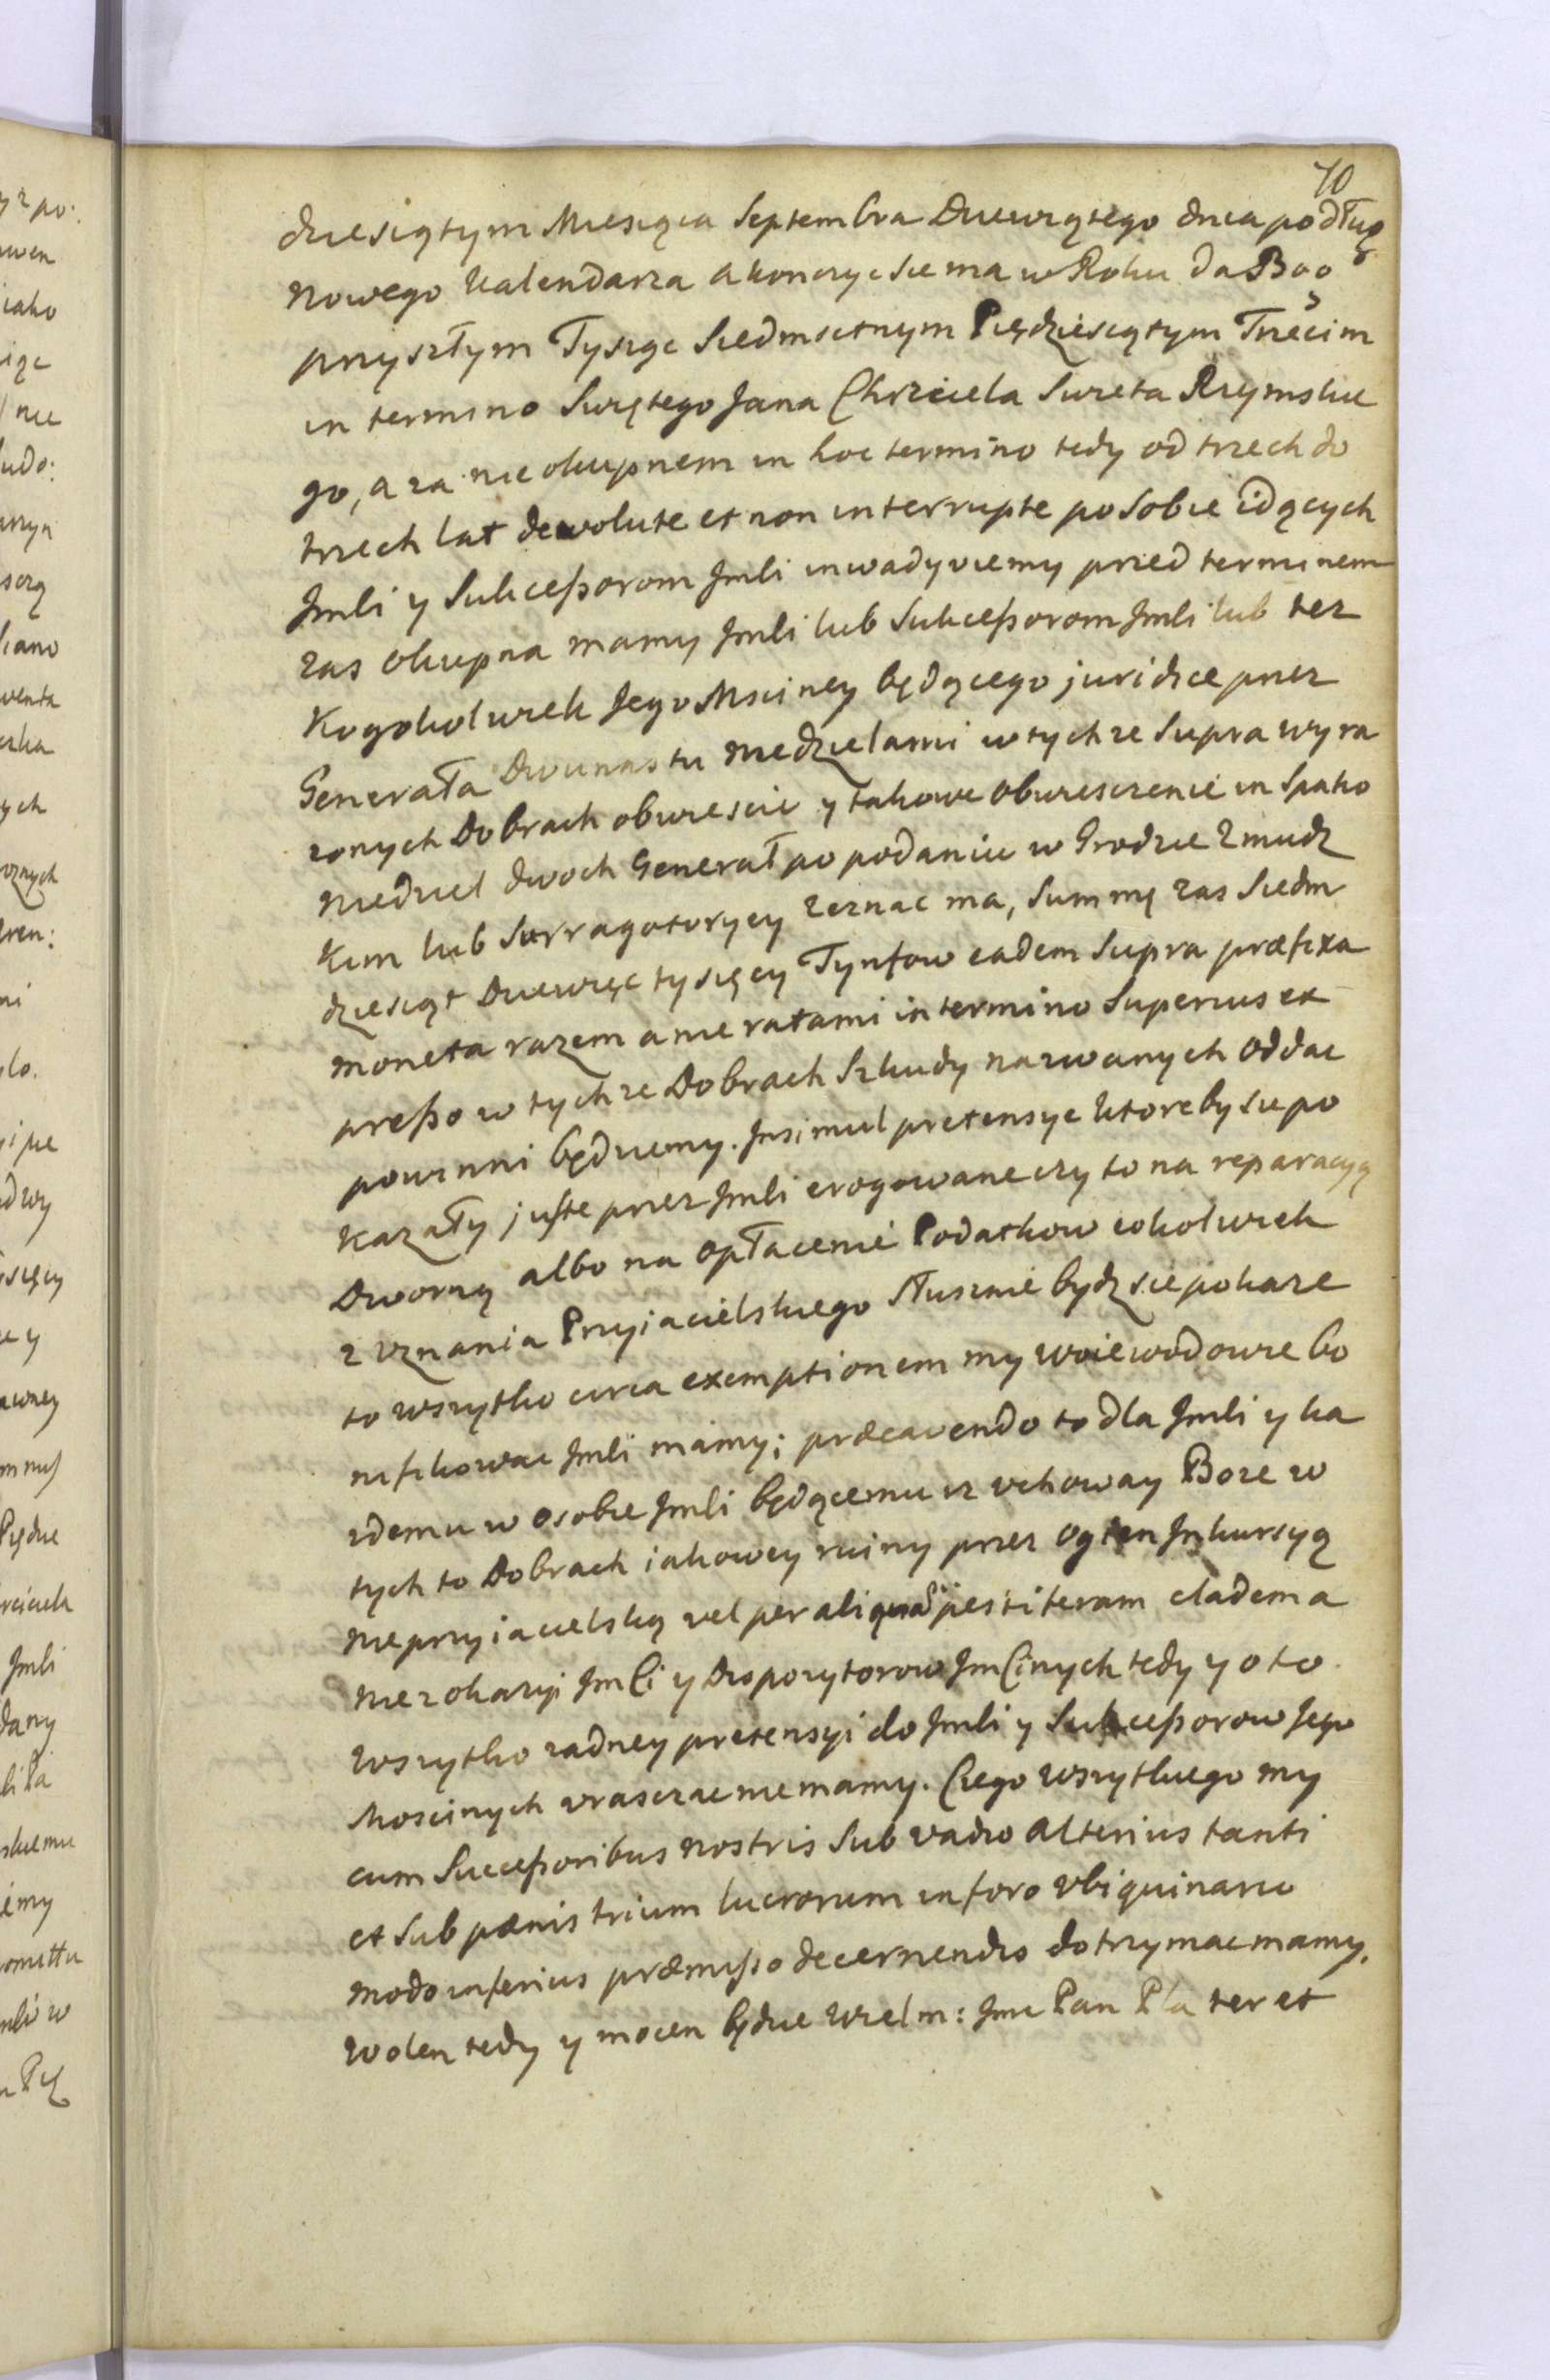 70
dziesiątym Miesiąca Septembra Dziewiątego dnia podług
Nowego Kalendarza a konczyc sie ma w Roku da Bog
przyszłym Tysiąc Siedmsetnym Pięдziesiątym Trzecim
in termino Swiętego Jana Chrzciela Swieta Rzymskie
go, a za nie okupnem in hoc termino tedy od trzech do
trzech lat devolute et non interrupte po sobie idących
Jmśi y Sukceßorom Jmśi inwadyuiemy przed terminem
zas okupna mamy Jmśi lub Sukceßorom Jmśi lub tez
Kogokolwiek JegoMsciney będącego juridice przez
Generała Dwunastu Niedzielami w tychze Supra wyra
zonych Dobrach obwiescic y takowe obwiesczenie in Spatio
Niedziel dwoch Generał po podaniu w Grodzie Zmudz
kim lub Surrogatoryey zeznac ma, Summę zas Siedm
dziesiąt Dziewięc tysięcy Tynfow eadem Supra præfixa
moneta razem a nie ratami in termino Superius ex
preßo w tychze Dobrach Szkudy nazwanych oddac
powinni będziemy. Insimul pretensye ktoreby sie po
kazały juste przez Jmśi erogowane czy to na reparacyą
Dworną albo na opłacenie Podatkow cokolwiek
z vznania Przyiacielskiego słusznie bydz sie pokaze
to wszytko circa exemptionem my Woiewodowie bo
nifikowac Jmśi mamy; præcavendo to dla Jmśi y ka
zdemu w osobie Jmśi będącemu iz vchoway Boze w
tych to Dobrach iakowey ruiny przez ogien Inkursyą
Nieprzyiacielską vel per aliquã pestiferam cladem a
nie z okazyi Jmści y Dispozytorow Jmścinych tedy y o to
wszytko zadney pretensyi do Jmśi y Sukceßorow Jego
Moscinych wrasczac nie mamy. Czego wszytkiego my
cum Succeßoribus nostris Sub vadio alterius tanti
et Sub pænis trium lucrorum in foro vbiquinario
modo inferius præmißo decernendis dotrzymac mamy.
Wolen tedy y mocen będzie Wielm: Jmc Pan Plater et